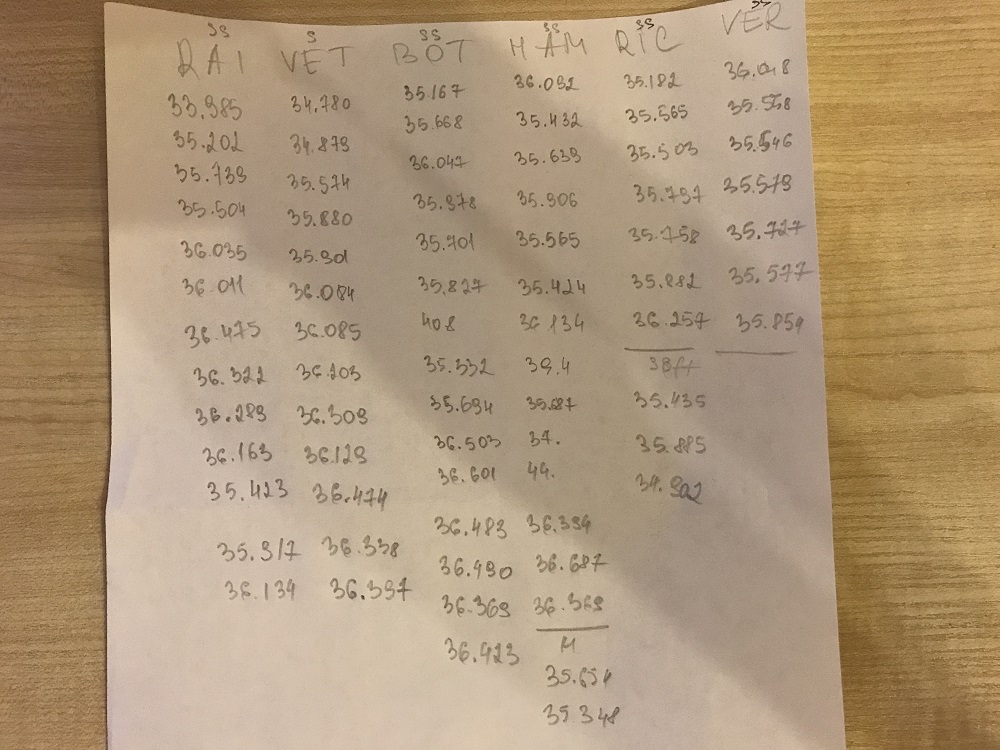 SS S SS SS SS SS
RAI VET BOT HAM RIC VER
33.985 34.780 35.167 36.092 35.182
35.202 34.879 35.668 35.432 35.565 35.558
35.739 35.574 36.047 35.639 35.503 35.546
35.504 35.880 35.978 35.906 35.797 35.579
36.035 35.901 35.701 35.565 35.758 35.727
36.011 36.084 35.827 35.424 35.882 35.577
36.475 36.085 408 36.134 36.257 35.854
36.322 36.203 35.332 39.4
36.289 36.309 35.694 35.687 35.435
36.163 36.129 36.503 37. 35.885
35.423 36.474 36.601 44. 34.902
35.917 36.338 36.483 36.394
36.134 36.397 36.490 36.687
36.369 36.369
36.423 M
35.654
35.348